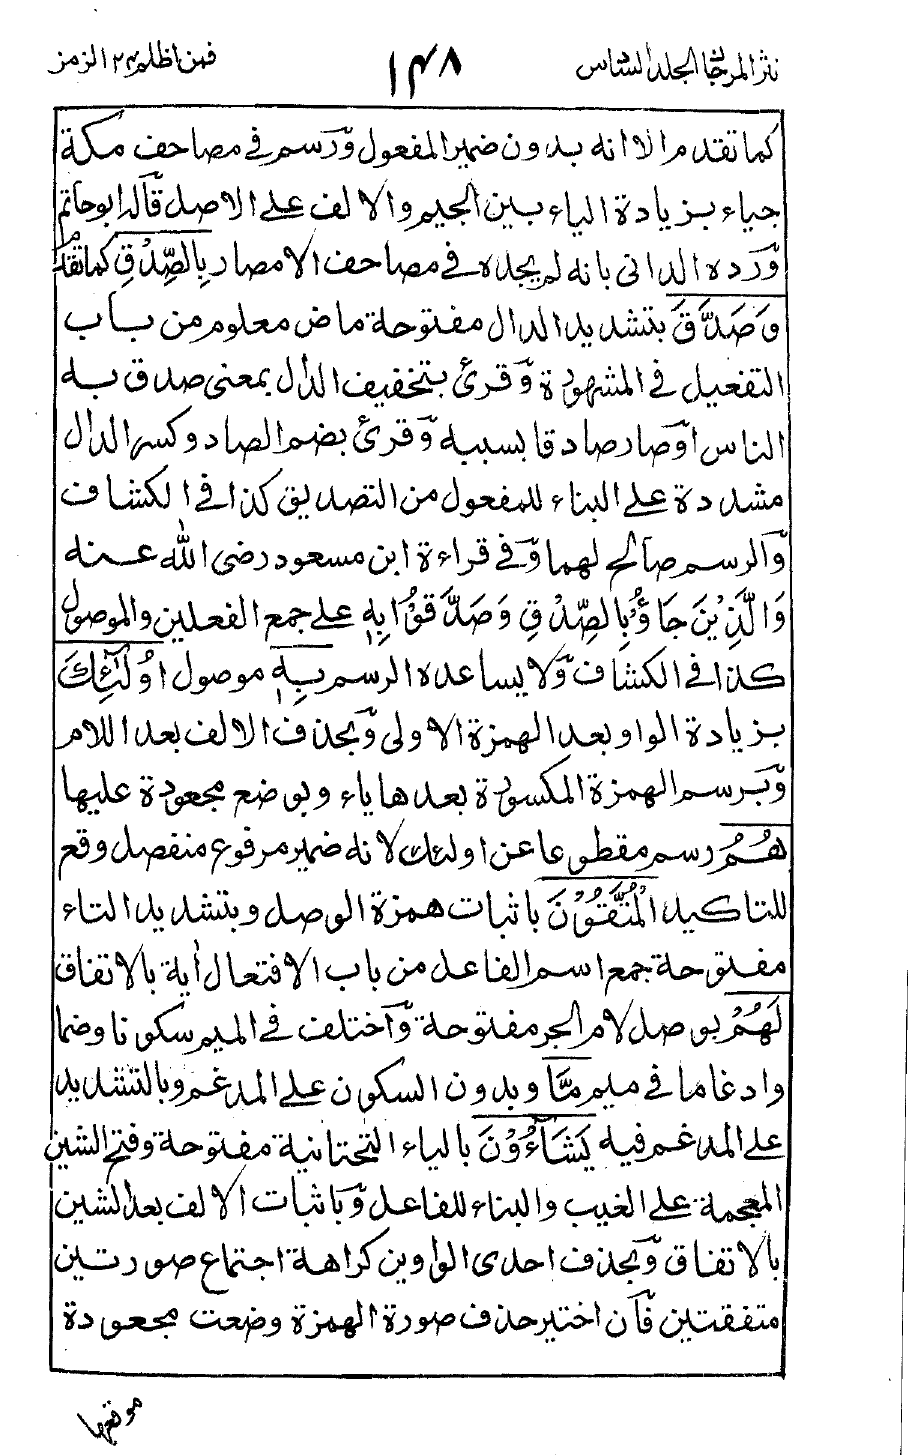 نثر المرجان الجلد السادس ١٤٨ فمن اظلم ٢٤ الزمر
كما تقدم الا انه بدون ضمير المفعول وّرسم في مصاحف مكة
جياء بزيادة الياء بين الجيم والالف على الاصل قاله ابو حاتم
وّرده الداني بانه لم يجده في مصاحف الامصار بِالصِّدْقِ كما تقدم
وَصَدَّقَ بتشديد الدال مفتوحة ماض معلوم من باب
التفعيل في المشهورة وّقرئ بتخفيف الدال بمعنى صدق به
الناس اوّصار صادقا بسببه وّقرئ بضم الصاد وكسر الدال
مشددة على البناء للمفعول من التصديق كذا في الكشاف
وّالرسم صالح لهما وّفي قراءة ابن مسعود رضى الله عنه
وَالَّذِيْنَ جَاؤُ بِالصِّدْقِ وَصَدَّقُوْا بِهٖ على جمع الفعلين والموصول
كذا في الكشاف وّلا يساعده الرسم بِهٖ موصول اُولٰٓئِكَ
بزيادة الواو بعد الهمزة الاولى وّبحذف الالف بعد اللام
وّبرسم الهمزة المكسورة بعدها ياء وبوضع مجعودة عليها
هُمُ رسم مقطوعا عن اولئك لانه ضمير مرفوع منفصل وقع
للتاكيد الْمُتَّقُوْنَ باثبات همزة الوصل وبتشديد التاء
مفتوحة جمع اسم الفاعل من باب الافتعال اٰية بالاتفاق
لَهُمْ بوصل لام الجر مفتوحة وّاختلف في الميم سكونا وضما
وادغاما في ميم مَّا وبدون السكون على المدغم وبالتشديد
على المدغم فيه يَشَآءُوْنَ بالياء التحتانية مفتوحة وفتح الشين
المعجمة على الغيب والبناء للفاعل وّباثبات الالف بعد الشين
بالاتفاق وّبحذف احدى الواوين كراهة اجتماع صورتين
متفقتين فاّن اختير حذف صورة الهمزة وضعت مجعودة
موقعها